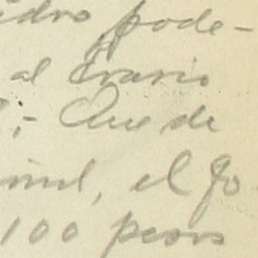 edro, pode-
al Erario
;- Que de
mil, el Go
100 pesos